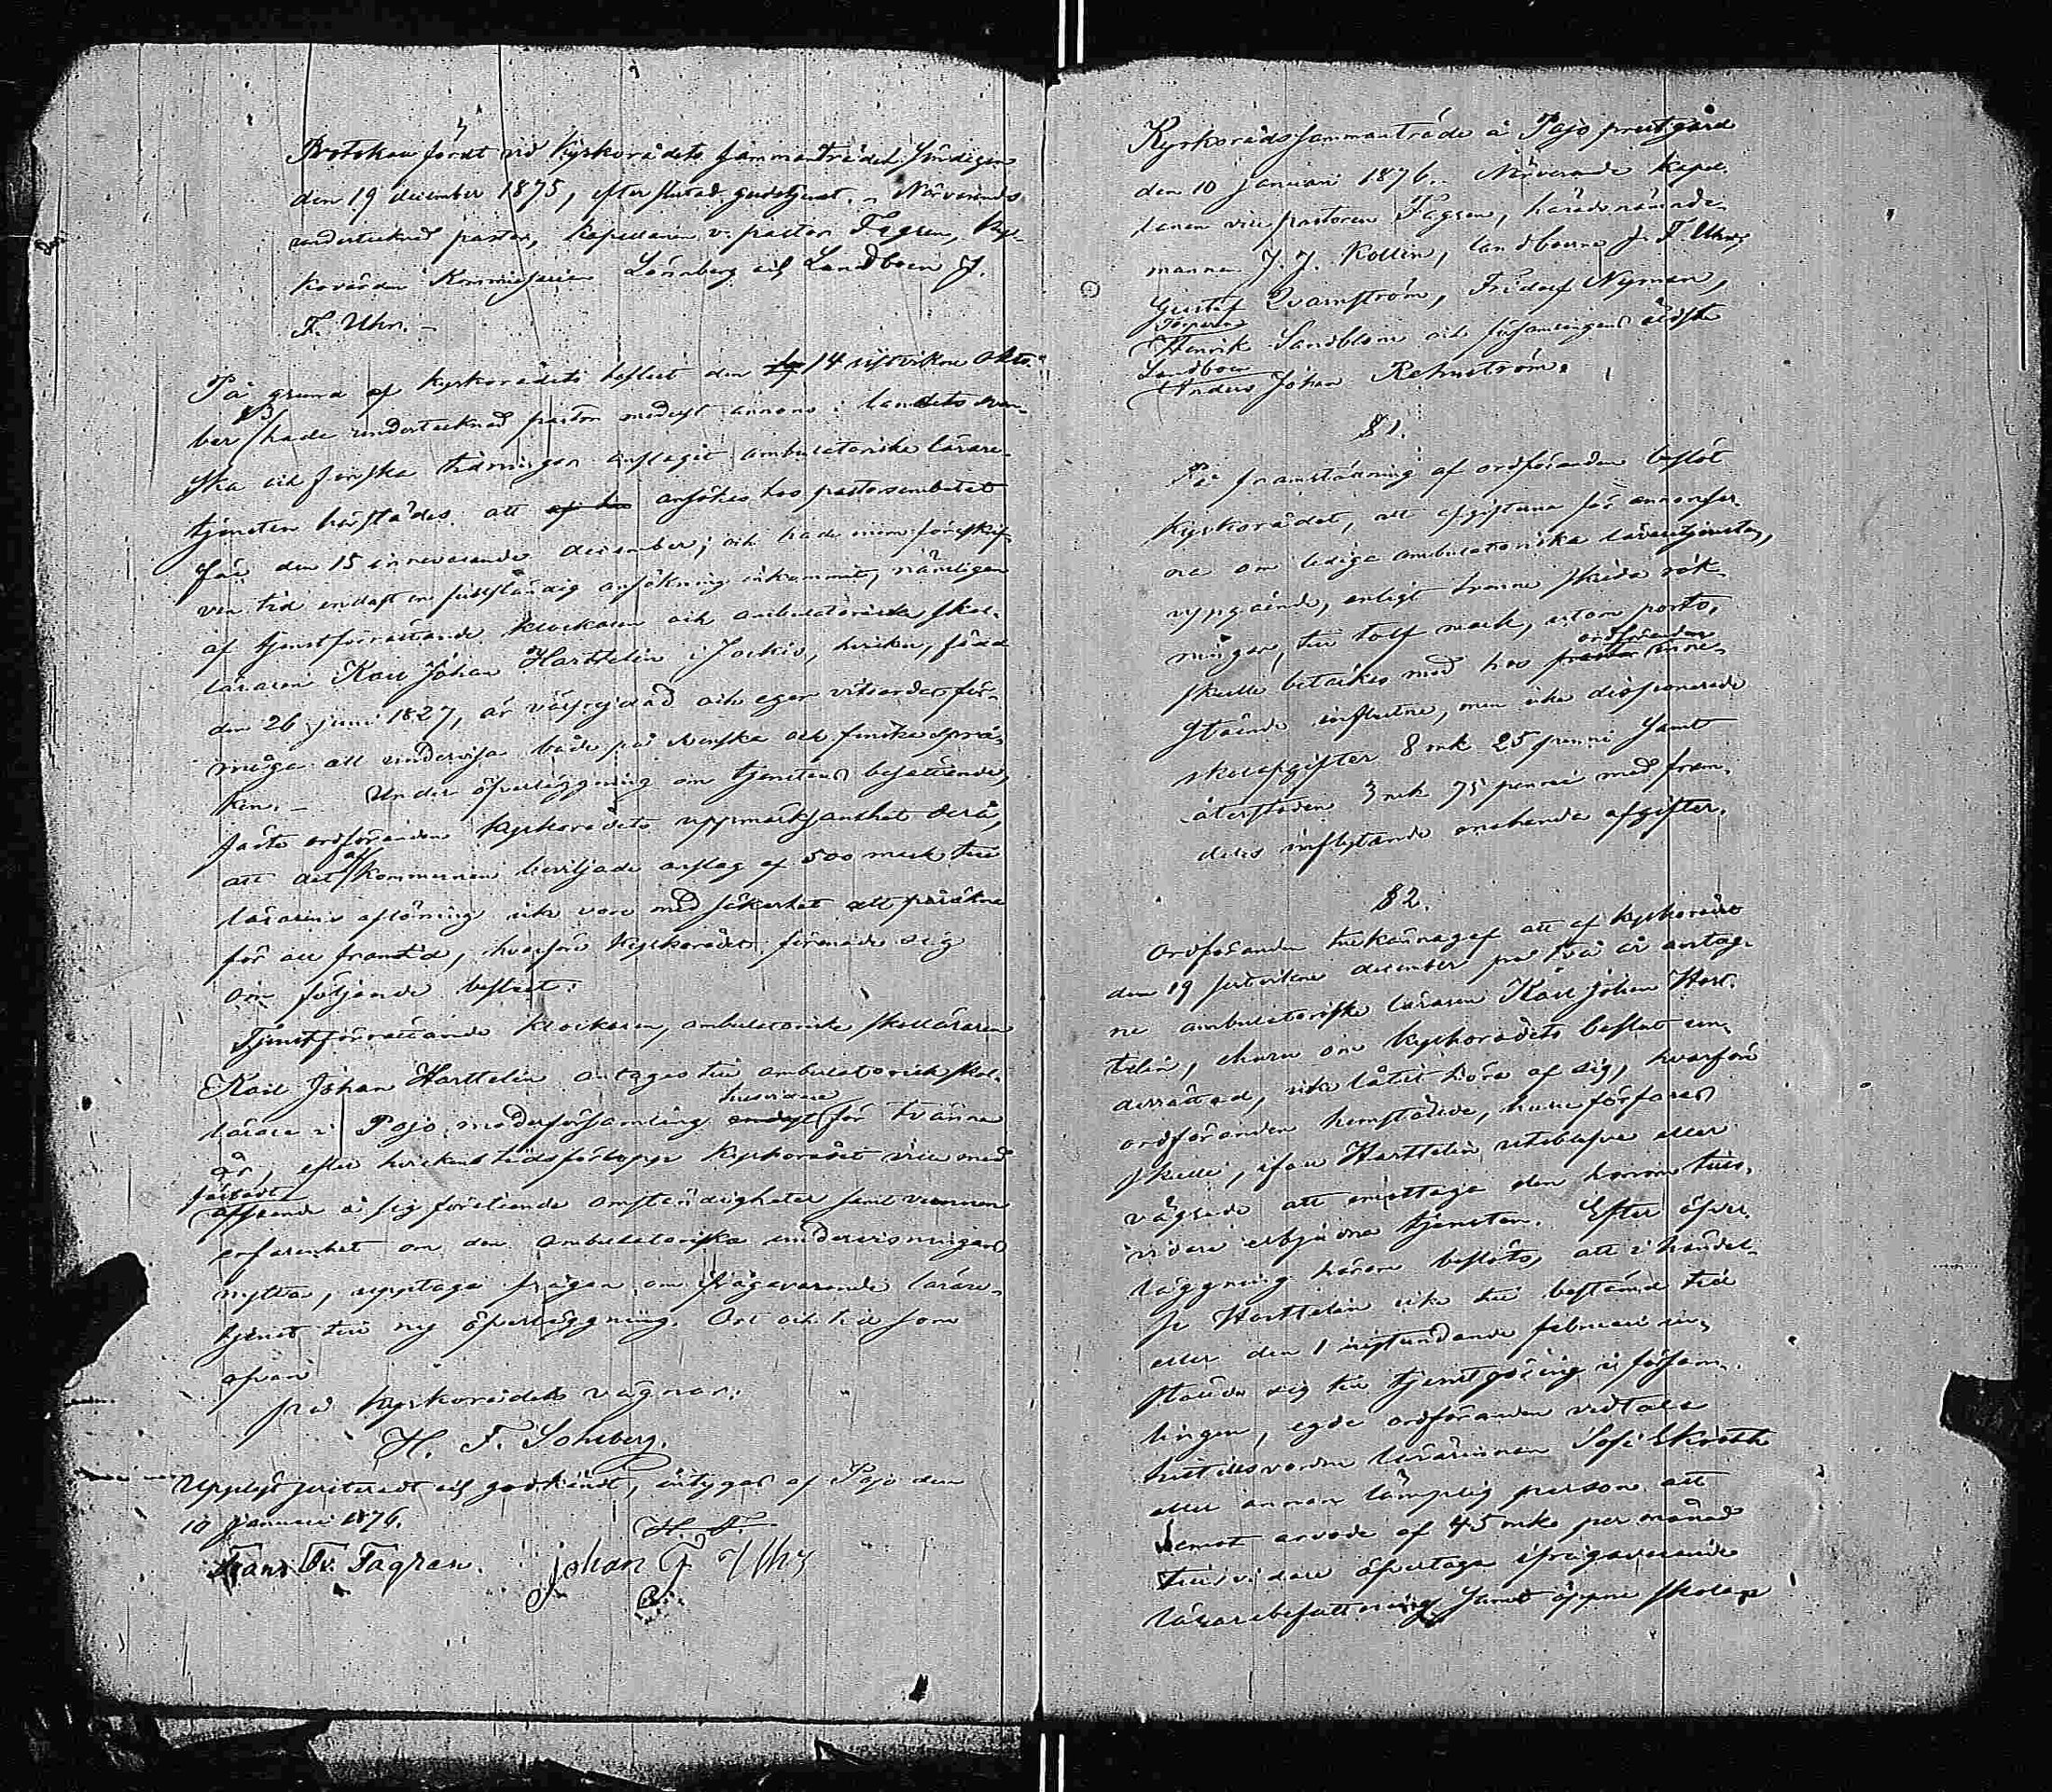 Protokoll fördt vid Kyrkorådets sammanträdet Söndagen
den 19 december 1875, efter slutad gudstjenst. – Närvarande
undertecknad pastor, kapellanen v. pastor Fagren, Kyr-
kovärden Kommissarien Lönnberg och Landboen J.
F. Uhr. –
På grund af kyrkorådets beslut den 14 sistvikne Okto-
ber § 3 hade undertecknad pastor medelst annons i landets sven-
ska och finska tidningar anslagit ambulatoriska lärare-
tjensten härstädes att ansökas hos pastorsembetet
före den 15 innevarande december; och hade inom föreskif-
ven tid endast en fullständig ansökning inkommit, nämligen
af tjenstförrättande klockaren och ambulatoriska skol-
läraren Karl Johan Harttelin i Jockis, hvilken, född
den 26 juni 1827, är välfrejdad och eger vitsordad för-
måga att undervisa både på svenska och finska språ-
ken. – Under öfverläggning om tjenstens besättande,
fäste ordföranden kyrkorådets uppmärksamhet derå,
att det af kommunen beviljade anslag af 500 mark till
lärarens aflöning icke vore med säkerhet att påräkna
för all framtid, hvarföre Kyrkorådet förenade sig
om följande beslut:
Tjenstförrättande klockaren, ambulatoriske skolläraren
Karl Johan Harttelin antages till ambulatorisk skol-
lärare i Pojo moderförsamling tillsvidare för tvänne
år, efter hvilkens tidsförlopp Kyrkorådet vill med
fästadt
afseende å sig företeende omständigheter samt vunnen
erfarenhet om den ambulatoriska undervisningens
nytta, upptaga frågan om ifrågavarande lärare-
tjenst till ny öfverläggning. Ort och tid som
ofvan
på kyrkorådets vägnar:
H. F. Sohlberg.
Uppläst justeradt och godkändt, intygas af Pojo den
10 januari 1876.
H. F.
Frans Fr. Fagren. Johan F Uhr
Kyrkorådssammanträde å Pojo prestgård
den 10 Januari 1876. Närvarande kapel-
lanen vice pastoren Fagren, häradsnämnde-
mannen J. J. Kollin, landboerne J. F. Uhr,
Gustaf Qvarnström, Fridolf Nyman,
Torparen
Henrik Sandblom och församlingens äldste
Landboen
Anders Johan Rehnström.
§ 1.
På framställning af ordföranden beslöt
Kyrkorådet, att afgifterna för annonser-
na om lediga ambulatoriska läraretjensten,
uppgående, enligt tvenne skilda räk-
ningar, till tolf mark, utom porto,
skulle betäckas med hos ordföranden inne-
stående influtne, men icke disponerade
skolafgifter 8 mk 25 penni samt
återstoden 3 mk 75 penni med fram-
deles inflytande enahanda afgifter.
§ 2.
Ordföranden tillkännagaf att af kyrkorådet
den 19 sistvikne december på två år antag-
ne ambulatoriske läraren Karl Johan Hart-
telin, ehuru om kyrkorådets beslut un-
derrättad, icke låtit höra af sig, hvarföre
ordföranden hemställde, huru förfaras
skulle, ifall Harttelin uteblefve eller
vägrade att emottaga den honom tills-
vidare erbjudna tjensten. Efter öfver-
läggning härom beslöts, att i händel-
se Harttelin icke till bestämd tid
eller den 1 instundande februari in-
ställde sig till tjenstgöring i försam-
lingen, egde ordföranden vidtala
härtillsvarande lärarinnan Sofi Ekroth
eller annan lämplig person att
emot arvode af 45 mk per månad
tillsvidare öfvertaga ifrågavarande
lärarebefattning samt öppna skolan